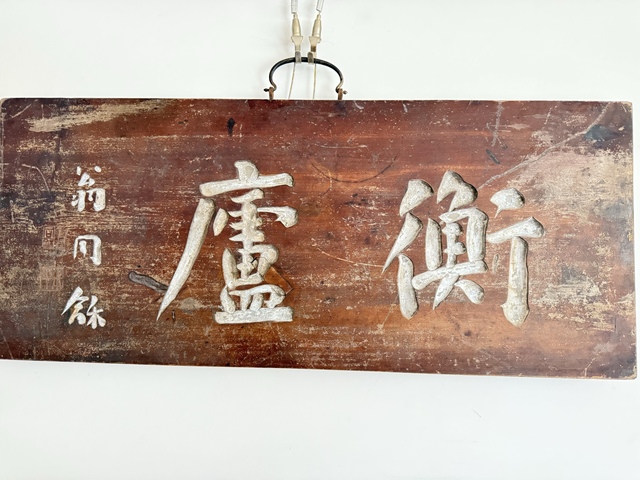 衡廬
翁同龢